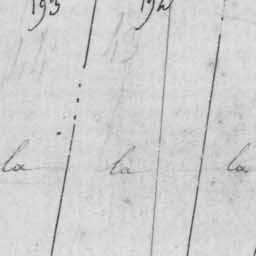 193 192
la la la